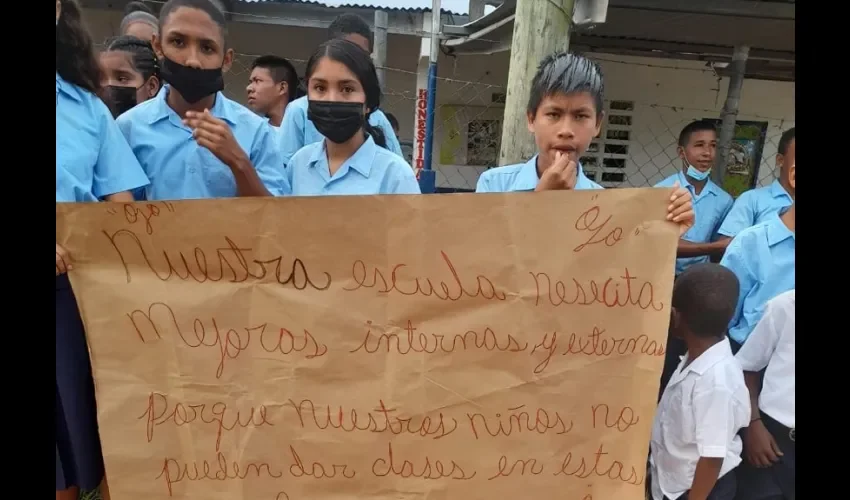 "Ojo"
Nuestra escuela nesecita
mejoras internas y externas
porque nuestros niños no
pueden dar clases en estas
HONESTI